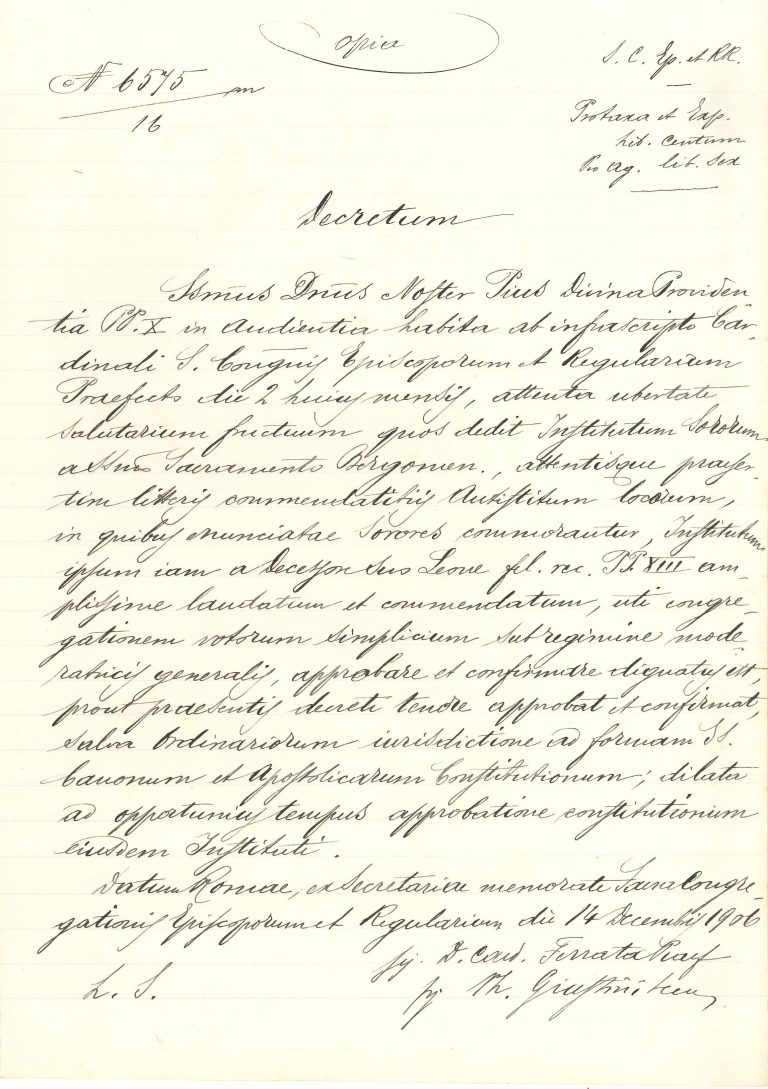 Copia
N 6575
16
S. C. Ep. et RR.
Pro taxa et Exp.
lib. centum
Pro Ag. lib. sex
Decretum
Ssm̃us Dnũs Noster Pius Divina Providen
tia PP. X in Audientia habita ab infrascripto Car-
dinali S. Congñis Episcoporum et Regularium
Praefecto die 2 huius mensis, attenta ubertate
salutarium fructuum quos dedit Institutum Sororum
a SSmo Sacramento Bergomen., attentisque praeser-
tim litteris commendatitiis Antistitum locorum,
in quibus enunciatae sorores commorantur, Institutum
ipsum iam a Decessore suo Leone fel. rec. PP. XIII am-
plissime laudatum et commendatum, uti congre-
gationem votorum simplicium sub regimine mode-
ratricis generalis, approbare et confirmare dignatus est,
prout praesentis decreti tenore approbat et confirmat,
salva Ordinariorum iurisdictione ad formam SS.
Canonum et Apostolicarum Constitutionum; dilata
ad opportunius tempus approbatione constitutionum
eiusdem Instituti.
Datum Romae, ex Secretaria memoratae Sacrae Congre-
gationis Episcoporum et Regularium die 14 Decembris 1906
D. Card. Ferrata Praef
L. S.
Ph. Giustini